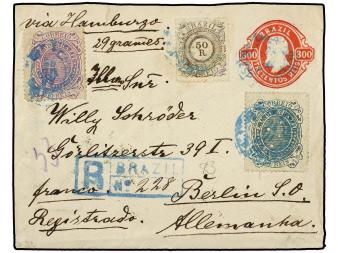 via Hamburgo
29 grames.
BRAZIL
300 300
TREZENTOS REIS
50
R.
CORREIO
Illm. Snr.
Willy Schröder
Görlitzerstr 39 I.
franco.
R BRAZIL
No. 228
Berlin S.O.
Registrado.
Allemanha.